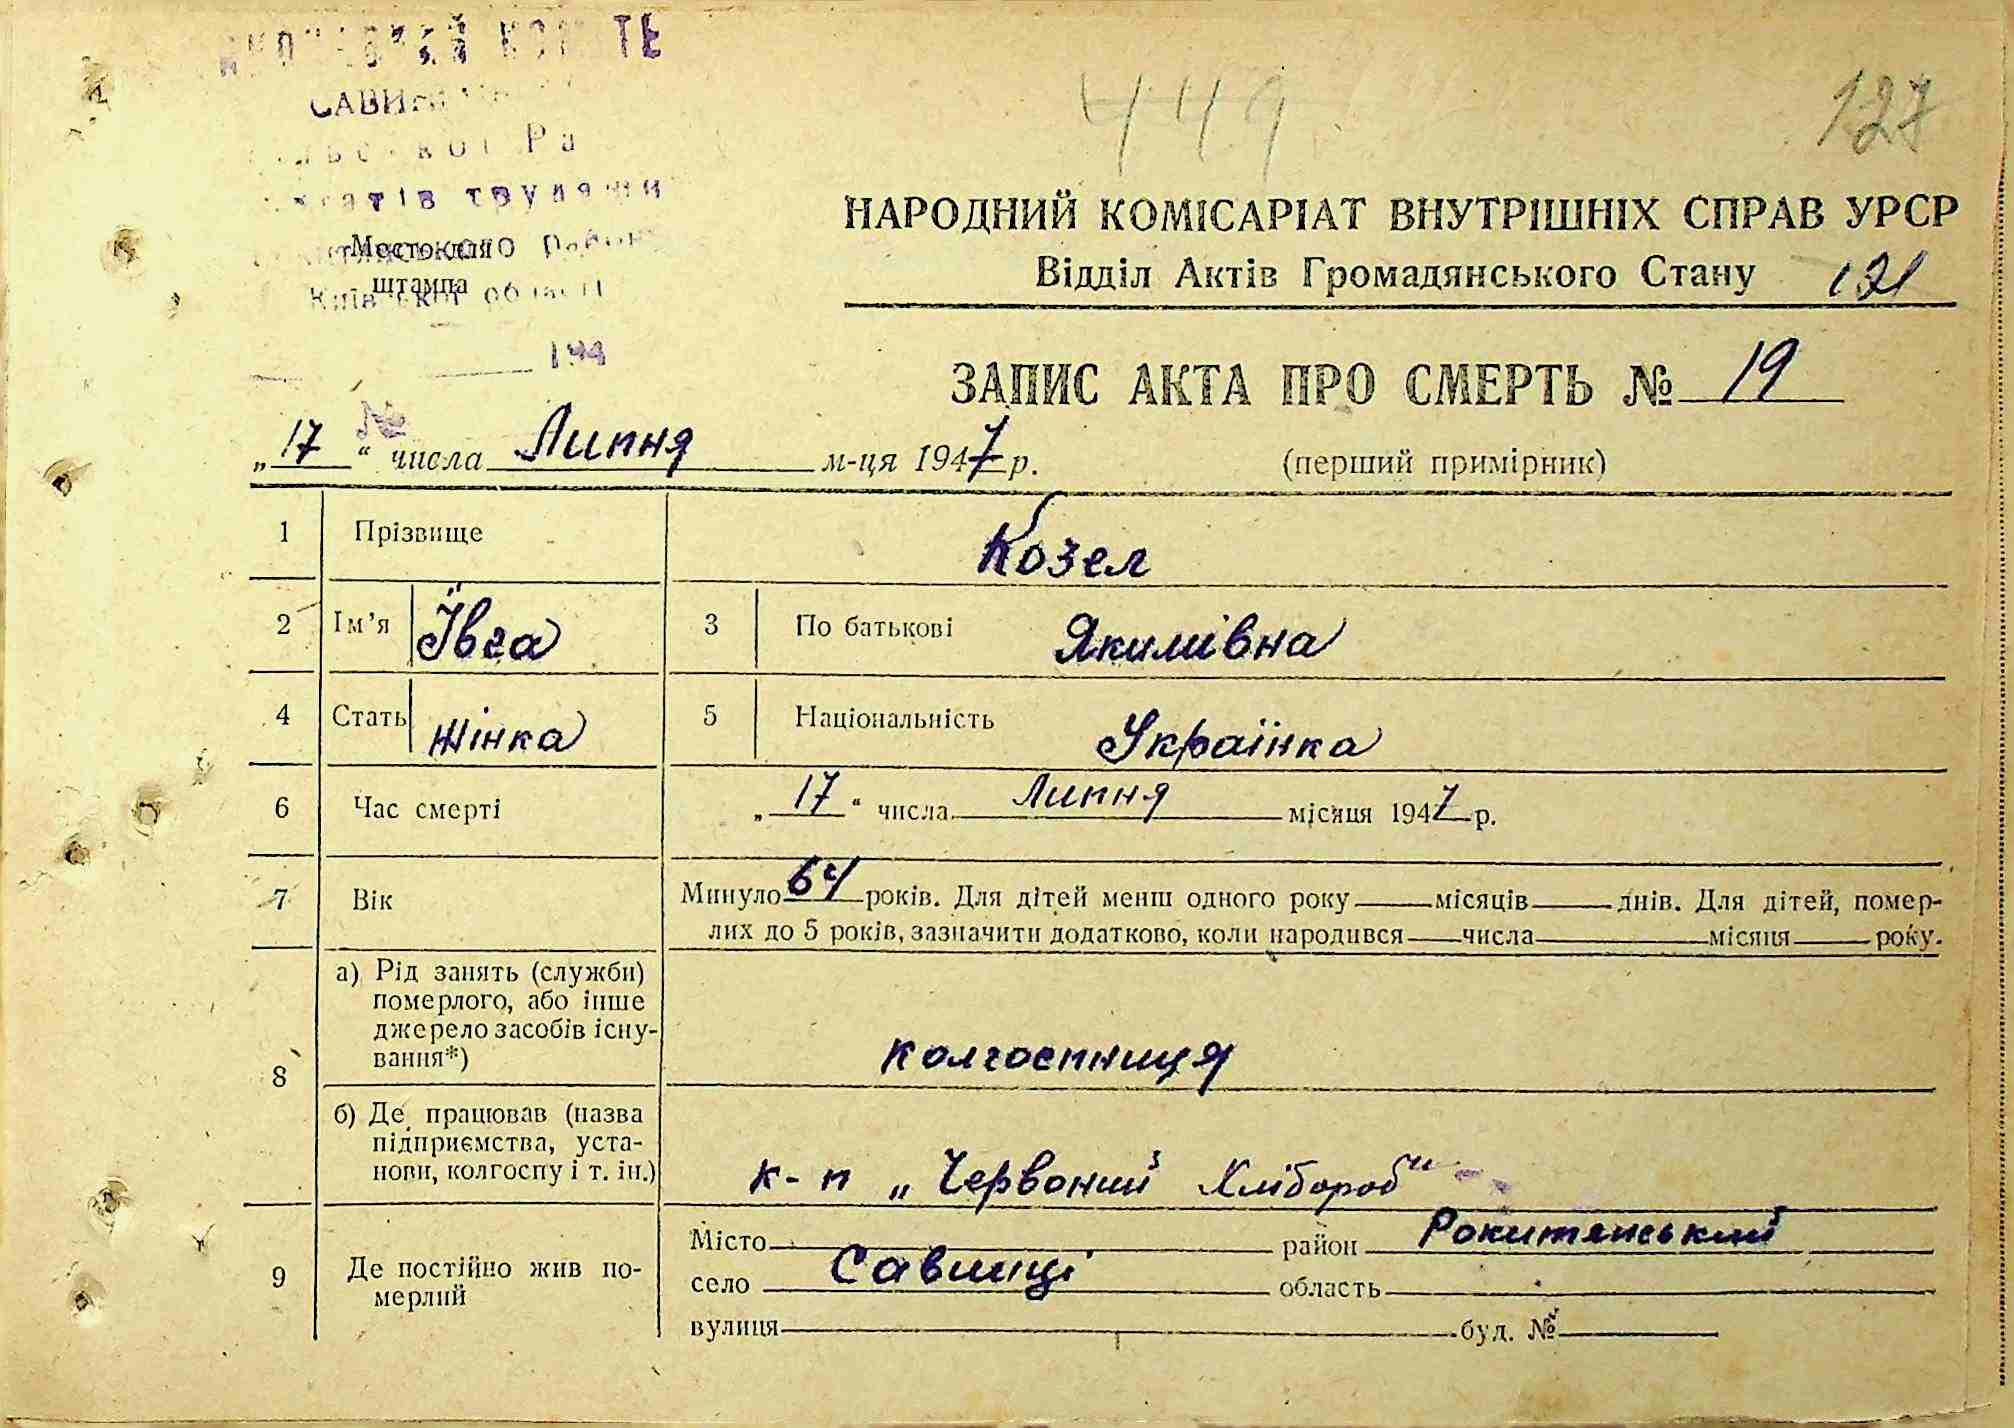 449
127
НАРОДНИЙ КОМІСАРІАТ ВНУТРІШНІХ СПРАВ УРСР
Відділ Актів Громадянського Стану
Місто для
штампа
Київської області
194
ЗАПИС АКТА ПРО СМЕРТЬ № 19
№
„17“ числа Липня м-ця 1947 р. (перший примірник)
1 Прізвище Козел
2 Ім’я Ївга 3 По батькові Якимівна
4 Стать жінка 5 Національність Українка
6 Час смерті „17“ числа Липня місяця 1947 р.
7 Вік Минуло 64 років. Для дітей менш одного року місяців днів. Для дітей, помер-
лих до 5 років, зазначити додатково, коли народився числа місяця року.
8 а) Рід занять (служби)
померлого, або інше
джерело засобів існу-
вання*) колгоспниця
б) Де працював (назва
підприємства, уста-
нови, колгоспу і т. ін.) к-п „Червоний Хлібороб"
9 Де постійно жив по-
мерлий
Місто район Рокитянський
село Савинці область
вулиця буд. №